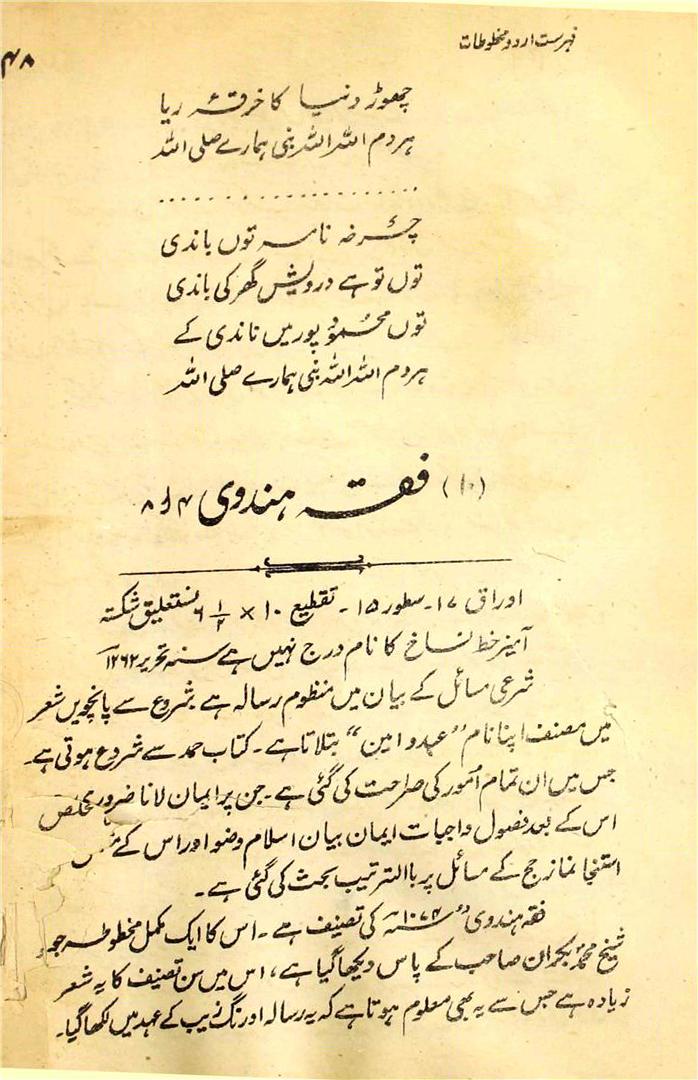 فہرست اردو مخطوطات
۴۸
چھوڑ دنیا کا خرقہ ریا
ہر دم اللہ اللہ نبی ہمارے صلی اللہ
. . . . . . . . . . . . . . . . . . . .
چرخہ نامہ توں باندی
توں تو ہے درویش گھر کی باندی
توں محمود پور میں ناندی کے
ہر دم اللہ اللہ نبی ہمارے صلی اللہ
(۱۰) فقہ ہندوی
اوراق ۱۷۔ سطور ۱۵۔ تقطیع ۱۰ × ۶ ۱/۲ نستعلیق شکستہ
آمیز خط نساخ کا نام درج نہیں ہے سنہ تحریر ۱۲۶۲ھ
شرعی مسائل کے بیان میں منظوم رسالہ ہے شروع سے پانچویں شعر
میں مصنف اپنا نام "عبدو امین" بتلاتا ہے۔ کتاب حمد سے شروع ہوتی ہے۔
جس میں ان تمام امور کی صراحت کی گئی ہے۔ جن پر ایمان لانا ضروری
اس کے بعد فصول واجبات ایمان بیان اسلام وضو اور اس کے
استنجا نماز حج کے مسائل پر باالترتیب بحث کی گئی ہے۔
فقہ ہندوی سنہ ۱۰۷۴ھ کی تصنیف ہے۔ اس کا ایک مکمل مخطوطہ جو
شیخ محمد صاحب کے پاس دیکھا گیا ہے، اس میں سن تصنیف کا یہ شعر
زیادہ ہے جس سے یہ بھی معلوم ہوتا ہے کہ یہ رسالہ اورنگ زیب کے عہد میں لکھا گیا۔